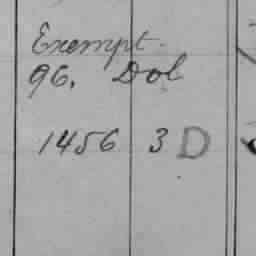 Exempt.
96. Dol
1456 3 D